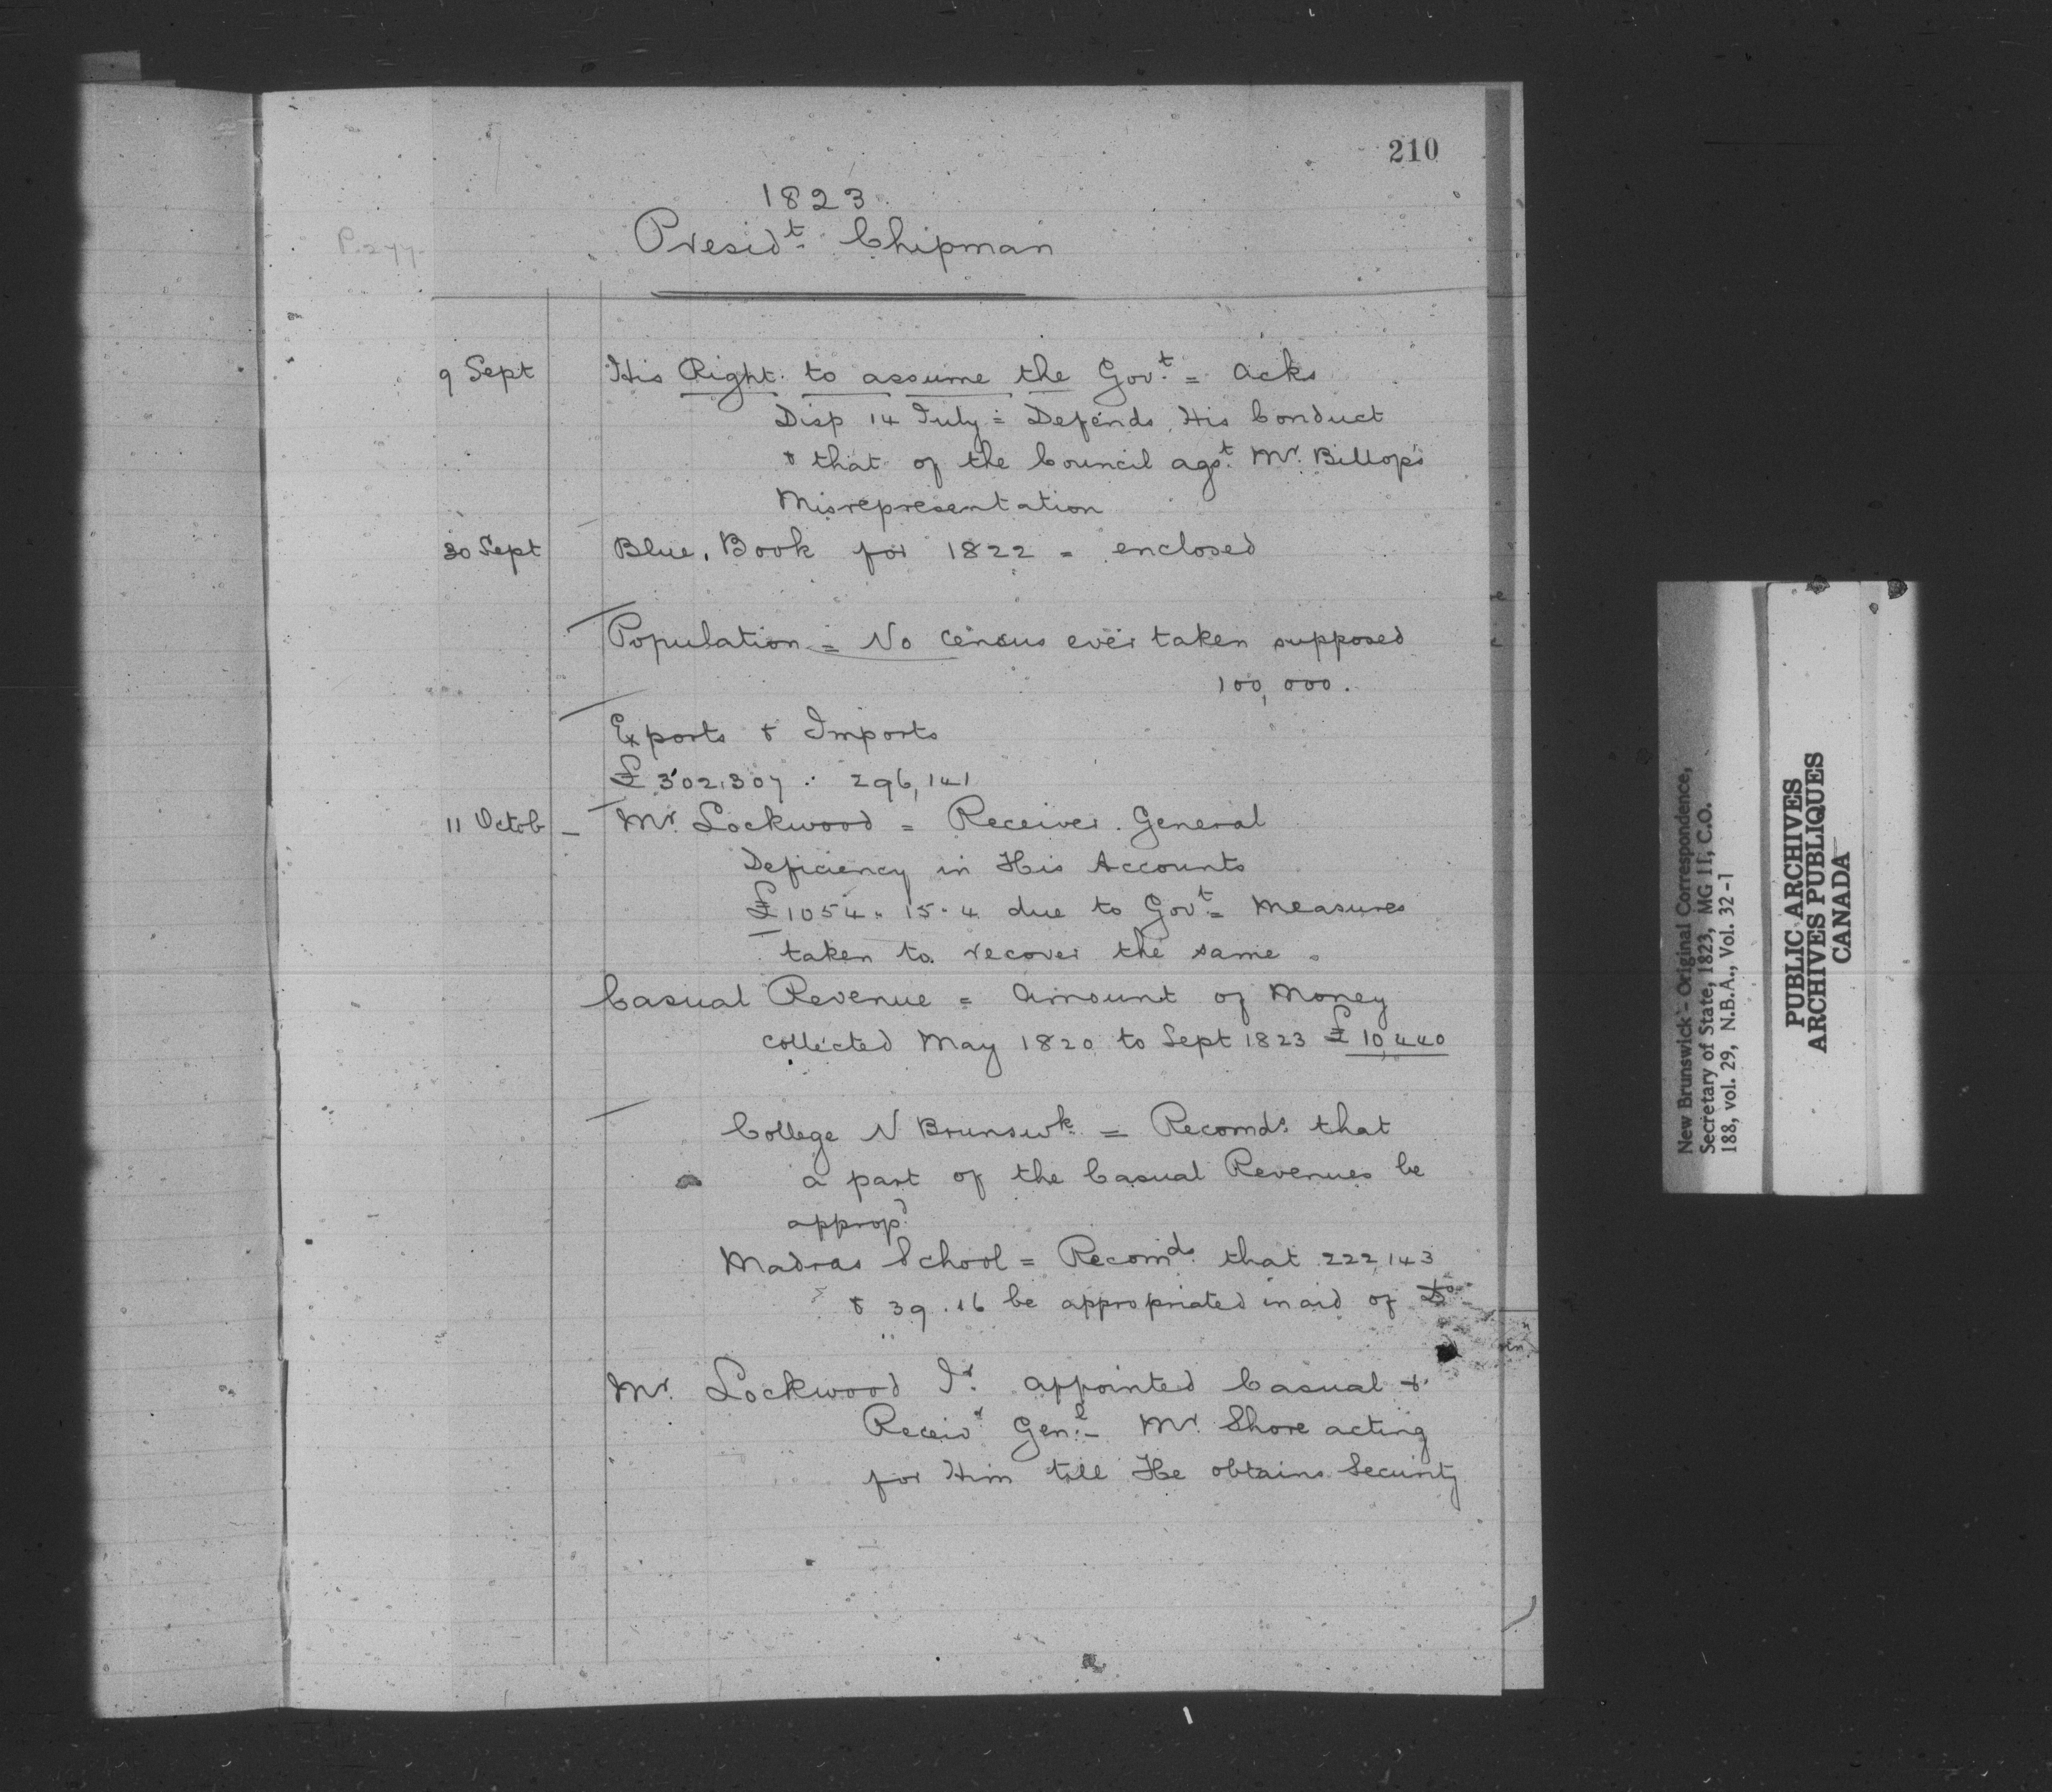 210
1823
Presidt Chipman
P. 277.
9 Sept His Right to assume the Govt = Acks
Disp 14 July = Defends His Conduct
& that of the Council agst Mr. Billop's
Misrepresentation
30 Sept Blue Book for 1822 = enclosed
Population = No Census ever taken supposed
100,000.
Exports & Imports
£ 302,307 : 296,141
11 Octob - Mr. Lockwood = Receiver General
Deficiency in His Accounts
£1054. 15. 4 due to Govt = Measures
taken to recover the same.
Casual Revenue = Amount of Money
collected May 1820 to Sept 1823 £ 10,440
College N Brunswk = Recomds that
a part of the Casual Revenues be
appropd
Madras School = Recomds that 222,143
& 39.16 be appropriated in aid of Do
Mr. Lockwood Jr. appointed Casual &
Receivr Genl - Mr. Shore acting
for Him till He obtains Security
New Brunswick - Original Correspondence,
Secretary of State, 1823, MG 11, C.O.
188, vol. 29, N.B.A., Vol. 32-1
PUBLIC ARCHIVES
ARCHIVES PUBLIQUES
CANADA